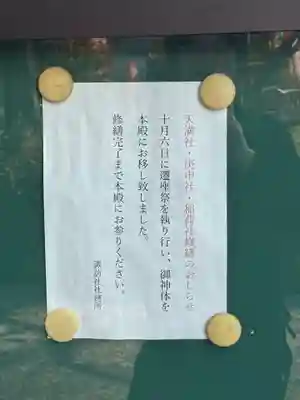 天満社・庚申社・稲荷社修繕のおしらせ
十月六日に遷座祭を執り行い、御神体を
本殿にお移し致しました。
修繕完了まで本殿にお参りください。
諏訪社社務所